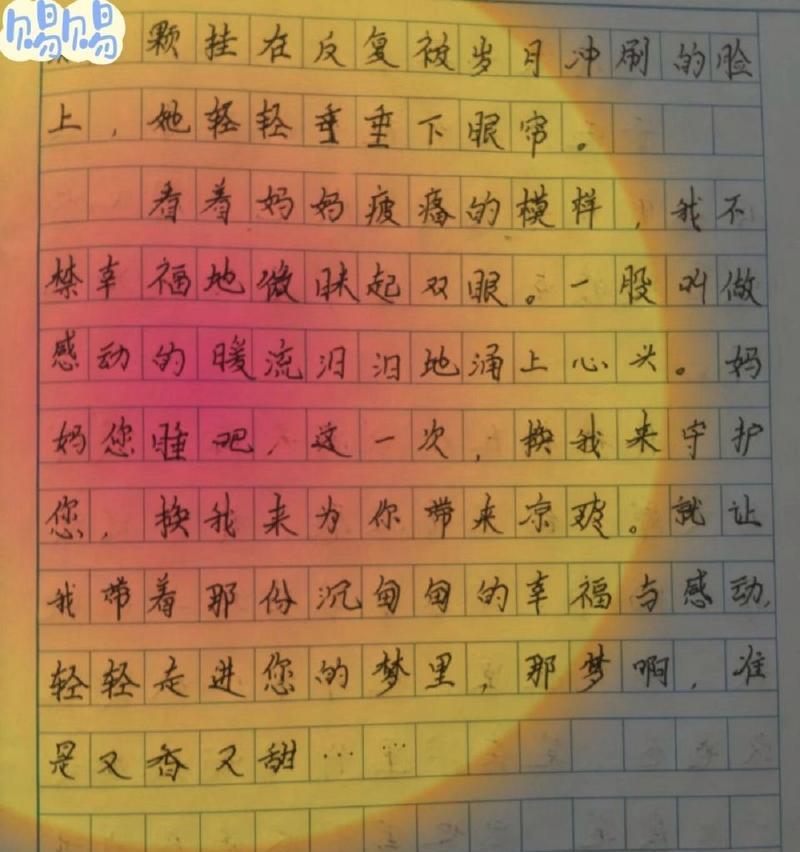 赐赐
颗挂在反复被岁月冲刷的脸
上，她轻轻垂垂下眼帘。
看着妈妈疲痛的模样，我不
禁幸福地微眯起双眼。一股叫做
感动的暖流汩汩地涌上心头。妈
妈您睡吧，这一次，换我来守护
您，换我来为你带来凉爽。就让
我带着那份沉甸甸的幸福与感动，
轻轻走进您的梦里，那梦啊，准
是又香又甜……